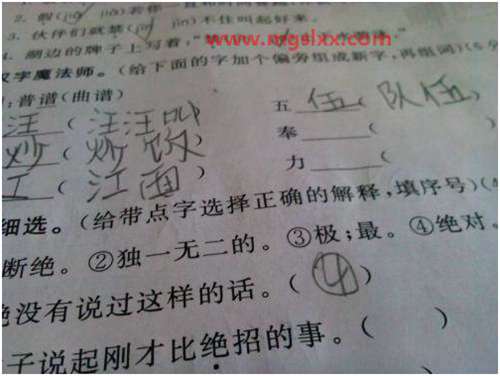 2. 假(
3. 伙伴们就禁(jīn jìn)不住叫起好来。
4. 边的牌子上写着,"
www.mgslxx.com
字魔法师。(给下面的字加个偏旁组成新字,再组词)(5分
:普谱(曲谱) 五 伍 (队伍)
汪 (汪汪叫 奉 (
炒 (炒饭) 力 (
工 (江面)
细选。(给带点字选择正确的解释,填序号)(4
断绝。②独一无二的。③极;最。④绝对。
绝没有说过这样的话。(④)
子说起刚才比绝招的事。( )